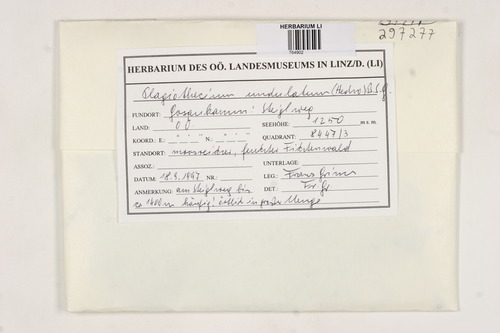 HERBARIUM LI
764902
297277
HERBARIUM DES OÖ. LANDESMUSEUMS IN LINZ/D. (LI)
Plagiothecium undulatum (Hedw.) B.S.G.
FUNDORT: Gosaukamm: Steiglweg
LAND: OÖ SEEHÖHE: 1250 m s. m.
KOORD.: E.: ° ' " N.: ° ' " QUADRANT: 8447/3
STANDORT: moosreicher, feuchter Fichtenwald
ASSOZ.: UNTERLAGE:
DATUM: 18.9.1997 LEG.: Franz Grims
ANMERKUNG: am Steiglweg bis DET.: Fr. Gr.
ca 1400 m häufig! örtlich in großer Menge